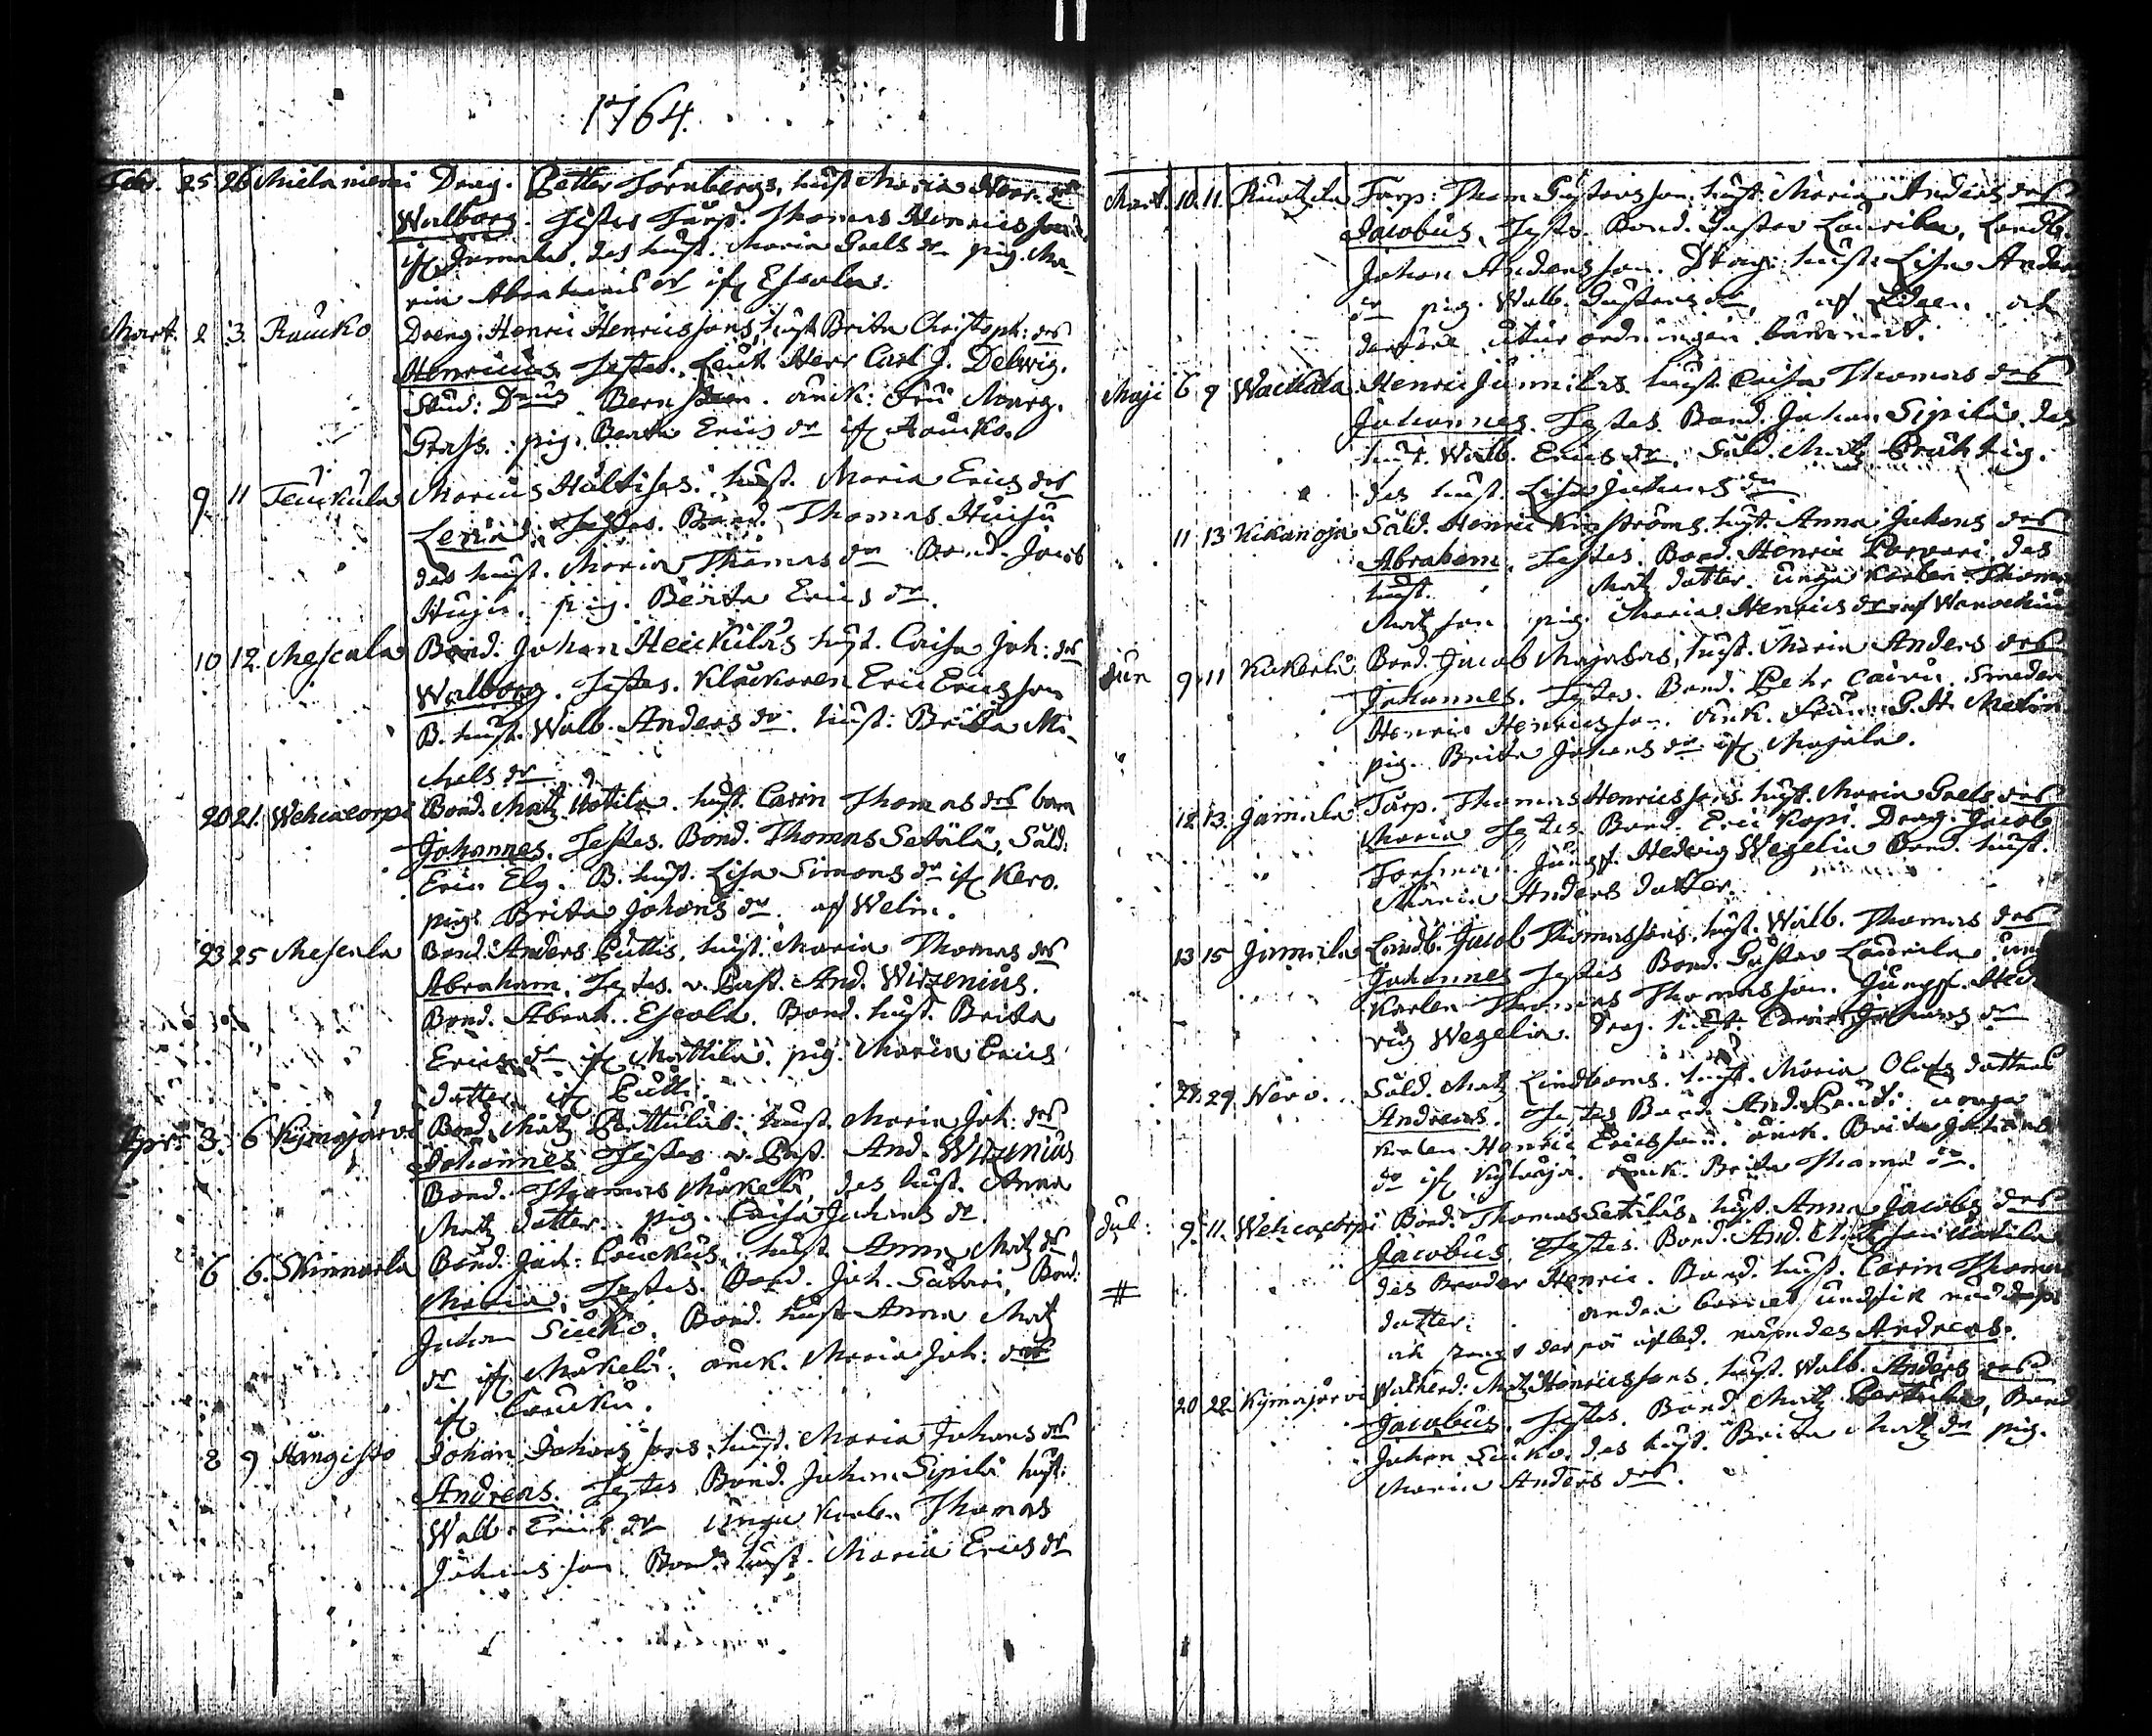 1764.
Febr. 25 26 Mielaniemi Drag. Petter Törnbergs, hust. Maria Henr. dr
Walborg. Testes Torp. Thomas Henricsson
des hust. Maria Graels dr pig. Ma-
ria dr if Escola.
Mart. 2 3. Raucko Dreng. Henric Henricssons, hust. Brita Christoph: drs
Henricus Testes. Leut. Herr Carl G. Delwig.
Stud: Bern änck: Fru Marg.
Grass. pig. Berta Erics dr if Raucko.
9 11 Teuckula Marcus Hultis hust. Maria Erics drs
Lena. Testes. Bond. Thomas Huisu
des hust. Maria Thomas dr Bond. Jacob
Hujsu. pig. Berta Erics dr.
10 12. Mescala Bond. Johan Heickiläs hust. Caisa Joh: drs
Walborg. Testes. Klåckaren Eric Ericsson
B. hust. Walb. Anders dr. hust: Brita Mi-
chels dr
20 21. Wehcacorpi Bond. Matz Uotila. hust. Carin Thomas drs barn
Johannes. Testes. Bond. Thomas Setälä, Såld.
Eric Elg. B. hust. Lisa Simons dr if Kero.
pig. Brita Johans dr. af Welin.
23 25 Mescala Bond. Anders Puttis, hust. Maria Thomas drs
Abraham. Testes. v. Past. And. Wirzenius.
Bond. Abrah. Escola. Bond. hust. Brita
Erics dr if Mattila. pig. Maria Erics
datter if Putti.
Apr: 3. 6 Kymajärvi Bond. Matz Perttuläs. hust. Maria Joh: drs
Johannes Testes v. Past. And. Wirzenius
Bond. Thomas Mäkelä, des hust. Anna
Matz datter. pig. Caisa Johans dr.
6 6. Skinnarla Bond. Joh: Couckus, hust. Anna Matz dr
Maria, Testes. Bond. Joh. Satari, Bond.
Johan Siucko. Bond. hust. Anna Matz
dr if Mäkelä. änck. Maria Joh: dr
if Coucku.
8 9 Hangisto Johan Johanssons, hust. Maria Johans dr
Andreas. Testes Bond. Johan Sipilä hust:
Walb. Erics dr Unga Karlen Thomas
Johansson Bond. hust. Maria Erics dr
Mart. 10. 11. Torp: Thom Gustavsson, hust. Maria Anders drs
Jacobus. Testes. Bond. Gustav Laurila, Landb.
Johan Andersson. Drag: hust. Lisa Anders
dr pig. Walb. Gustavs dr, af och
derföre utur ordningen kommit.
Maji 6 9 Wackala Henric Junnilas hust. Caisa Thomas drs
Johannes. Testes. Bond. Johan Sipilä. des
hust. Walb. Erics dr, Såld. Matz Bruktig.
des hust. Lisa Johans dr
11 13 Kickanoja Såld. Henric hust. Anna Johans drs
Abraham, Testes. Bond. Henric Parvari, des
hust. Matz datter. unga Karlen Thomas
Matzson pig. Maria Henrics dr af
Jun 9 11 Kickerlä Bond. Jacob Majalas, hust. Maria Anders drs
Johannes. Testes. Bond. Petr. Smeden
Henric Henricsson. änk. Fru G. H. Melin
pig. Brita Johans dr if Majala.
12. 13. Jamila Torp. Thomas Henricssons hust. Maria Graels drs
Maria Testes Bond. Eric Kopi. Drag. Jacob
Forsman. Jungf. Hedvig Wegelia Bond. hust.
Maria Anders datter.
13 15 Jamila Landb. Jacob Thomassons, hust. Walb. Thomas drs
Johannes Testes Bond. Gustav Laurila, ung
Karlen Thomas Thomasson. Jungf. Hed-
vig Wegelia. Drag. hust. Carin Johans dr
29 Nero. Såld. Matz Lindboms. hust. Maria Olofs dotters
Andreas. Testes Bond. And. unga
Karlen Henric Ericsson. änck. Brita Johans
dr if änck. Brita Thoms dr.
Jul: 9. 11. Wehcacorpi Bond. Thomas Setäläs, hust. Anna Jacobs drs
Jacobus Testes. Bond. And. Matzson Uotila
des Broder Henric. Bond. hust. Carin Thomas
#
datter. andra barnet undfick nöddop
och strax der på afled. nämndes Andreas.
20 22 Kymajärvi Matz Henricssons, hust. Walb. Anders drs
Jacobus. Testes. Bond. Matz Perttula, Bond
Johan Siucko, des hust. Brita Matz dr pig.
Maria Anders dr.